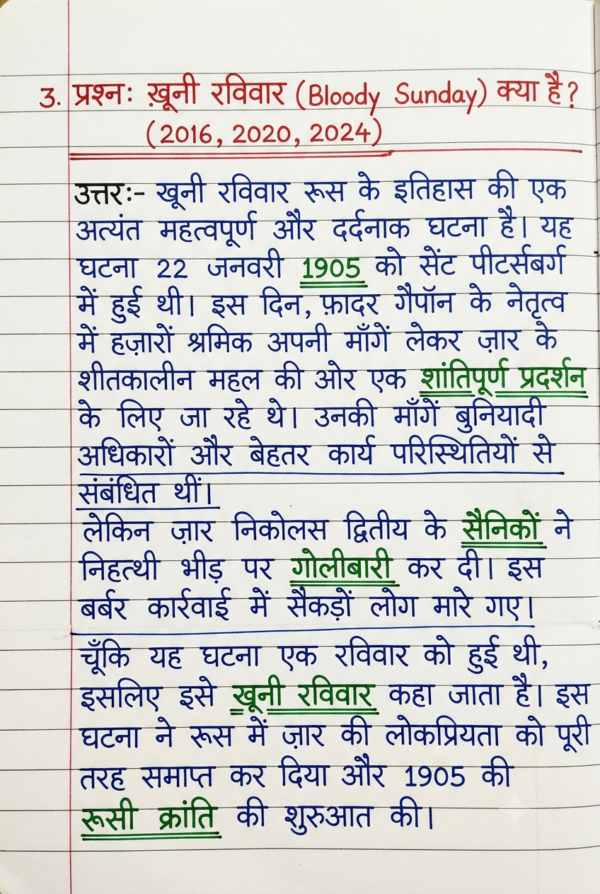 3. प्रश्नः ख़ूनी रविवार (Bloody Sunday) क्या है?
(2016, 2020, 2024)
उत्तरः- खूनी रविवार रूस के इतिहास की एक
अत्यंत महत्वपूर्ण और दर्दनाक घटना है। यह
घटना 22 जनवरी 1905 को सेंट पीटर्सबर्ग
में हुई थी। इस दिन, फ़ादर गैपॉन के नेतृत्व
में हज़ारों श्रमिक अपनी माँगें लेकर ज़ार के
शीतकालीन महल की ओर एक शांतिपूर्ण प्रदर्शन
के लिए जा रहे थे। उनकी माँगें बुनियादी
अधिकारों और बेहतर कार्य परिस्थितियों से
संबंधित थीं।
लेकिन ज़ार निकोलस द्वितीय के सैनिकों ने
निहत्थी भीड़ पर गोलीबारी कर दी। इस
बर्बर कार्रवाई में सैकड़ों लोग मारे गए।
चूँकि यह घटना एक रविवार को हुई थी,
इसलिए इसे खूनी रविवार कहा जाता है। इस
घटना ने रूस में ज़ार की लोकप्रियता को पूरी
तरह समाप्त कर दिया और 1905 की
रूसी क्रांति की शुरुआत की।